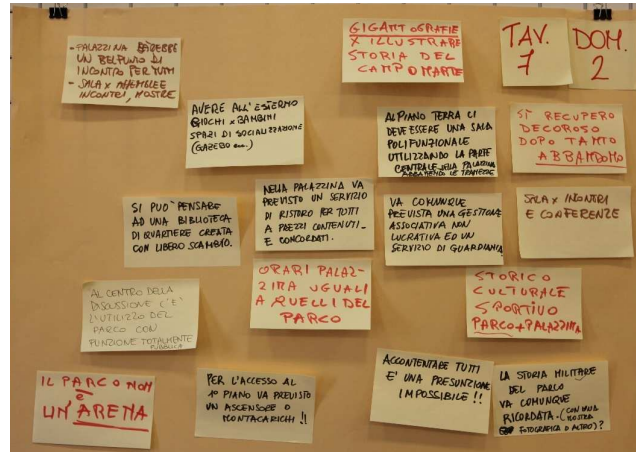 - PALAZZINA SAREBBE
UN BEL PUNTO DI
INCONTRO PER TUTTI
- SALA X ASSEMBLEE
INCONTRI, MOSTRE
GIGANTOGRAFIE
X ILLUSTRARE
STORIA DEL
CAMPO MARTE
TAV.
7
DOM.
2
AVERE ALL'ESTERNO
GIOCHI X BAMBINI
SPAZI DI SOCIALIZZAZIONE
(GAZEBO ecc.)
AL PIANO TERRA CI
DEVE ESSERE UNA SALA
POLIFUNZIONALE
UTILIZZANDO LA PARTE
CENTRALE DELLA PALAZZINA
ABBATTENDO LE TRAMEZZE
SÌ RECUPERO
DECOROSO
DOPO TANTO
ABBANDONO
SI PUO' PENSARE
AD UNA BIBLIOTECA
DI QUARTIERE CREATA
CON LIBERO SCAMBIO.
NELLA PALAZZINA VA
PREVISTO UN SERVIZIO
DI RISTORO PER TUTTI
A PREZZI CONTENUTI
E CONCORDATI.
VA COMUNQUE
PREVISTA UNA GESTIONE
ASSOCIATIVA NON
LUCRATIVA ED UN
SERVIZIO DI GUARDIANIA
SALA X INCONTRI
E CONFERENZE
AL CENTRO DELLA
DISCUSSIONE C'E'
L'UTILIZZO DEL
PARCO CON
FUNZIONE TOTALMENTE
PUBBLICA
ORARI PALAZ-
ZINA UGUALI
A QUELLI DEL
PARCO
STORICO
CULTURALE
SPORTIVO
PARCO + PALAZZINA
IL PARCO NON
è
UN'ARENA
PER L'ACCESSO AL
1° PIANO VA PREVISTO
UN ASCENSORE O
MONTACARICHI !!
ACCONTENTARE TUTTI
E' UNA PRESUNZIONE
IMPOSSIBILE !!
LA STORIA MILITARE
DEL PARCO
VA COMUNQUE
RICORDATA. (CON UNA
MOSTRA
FOTOGRAFICA O ALTRO)?